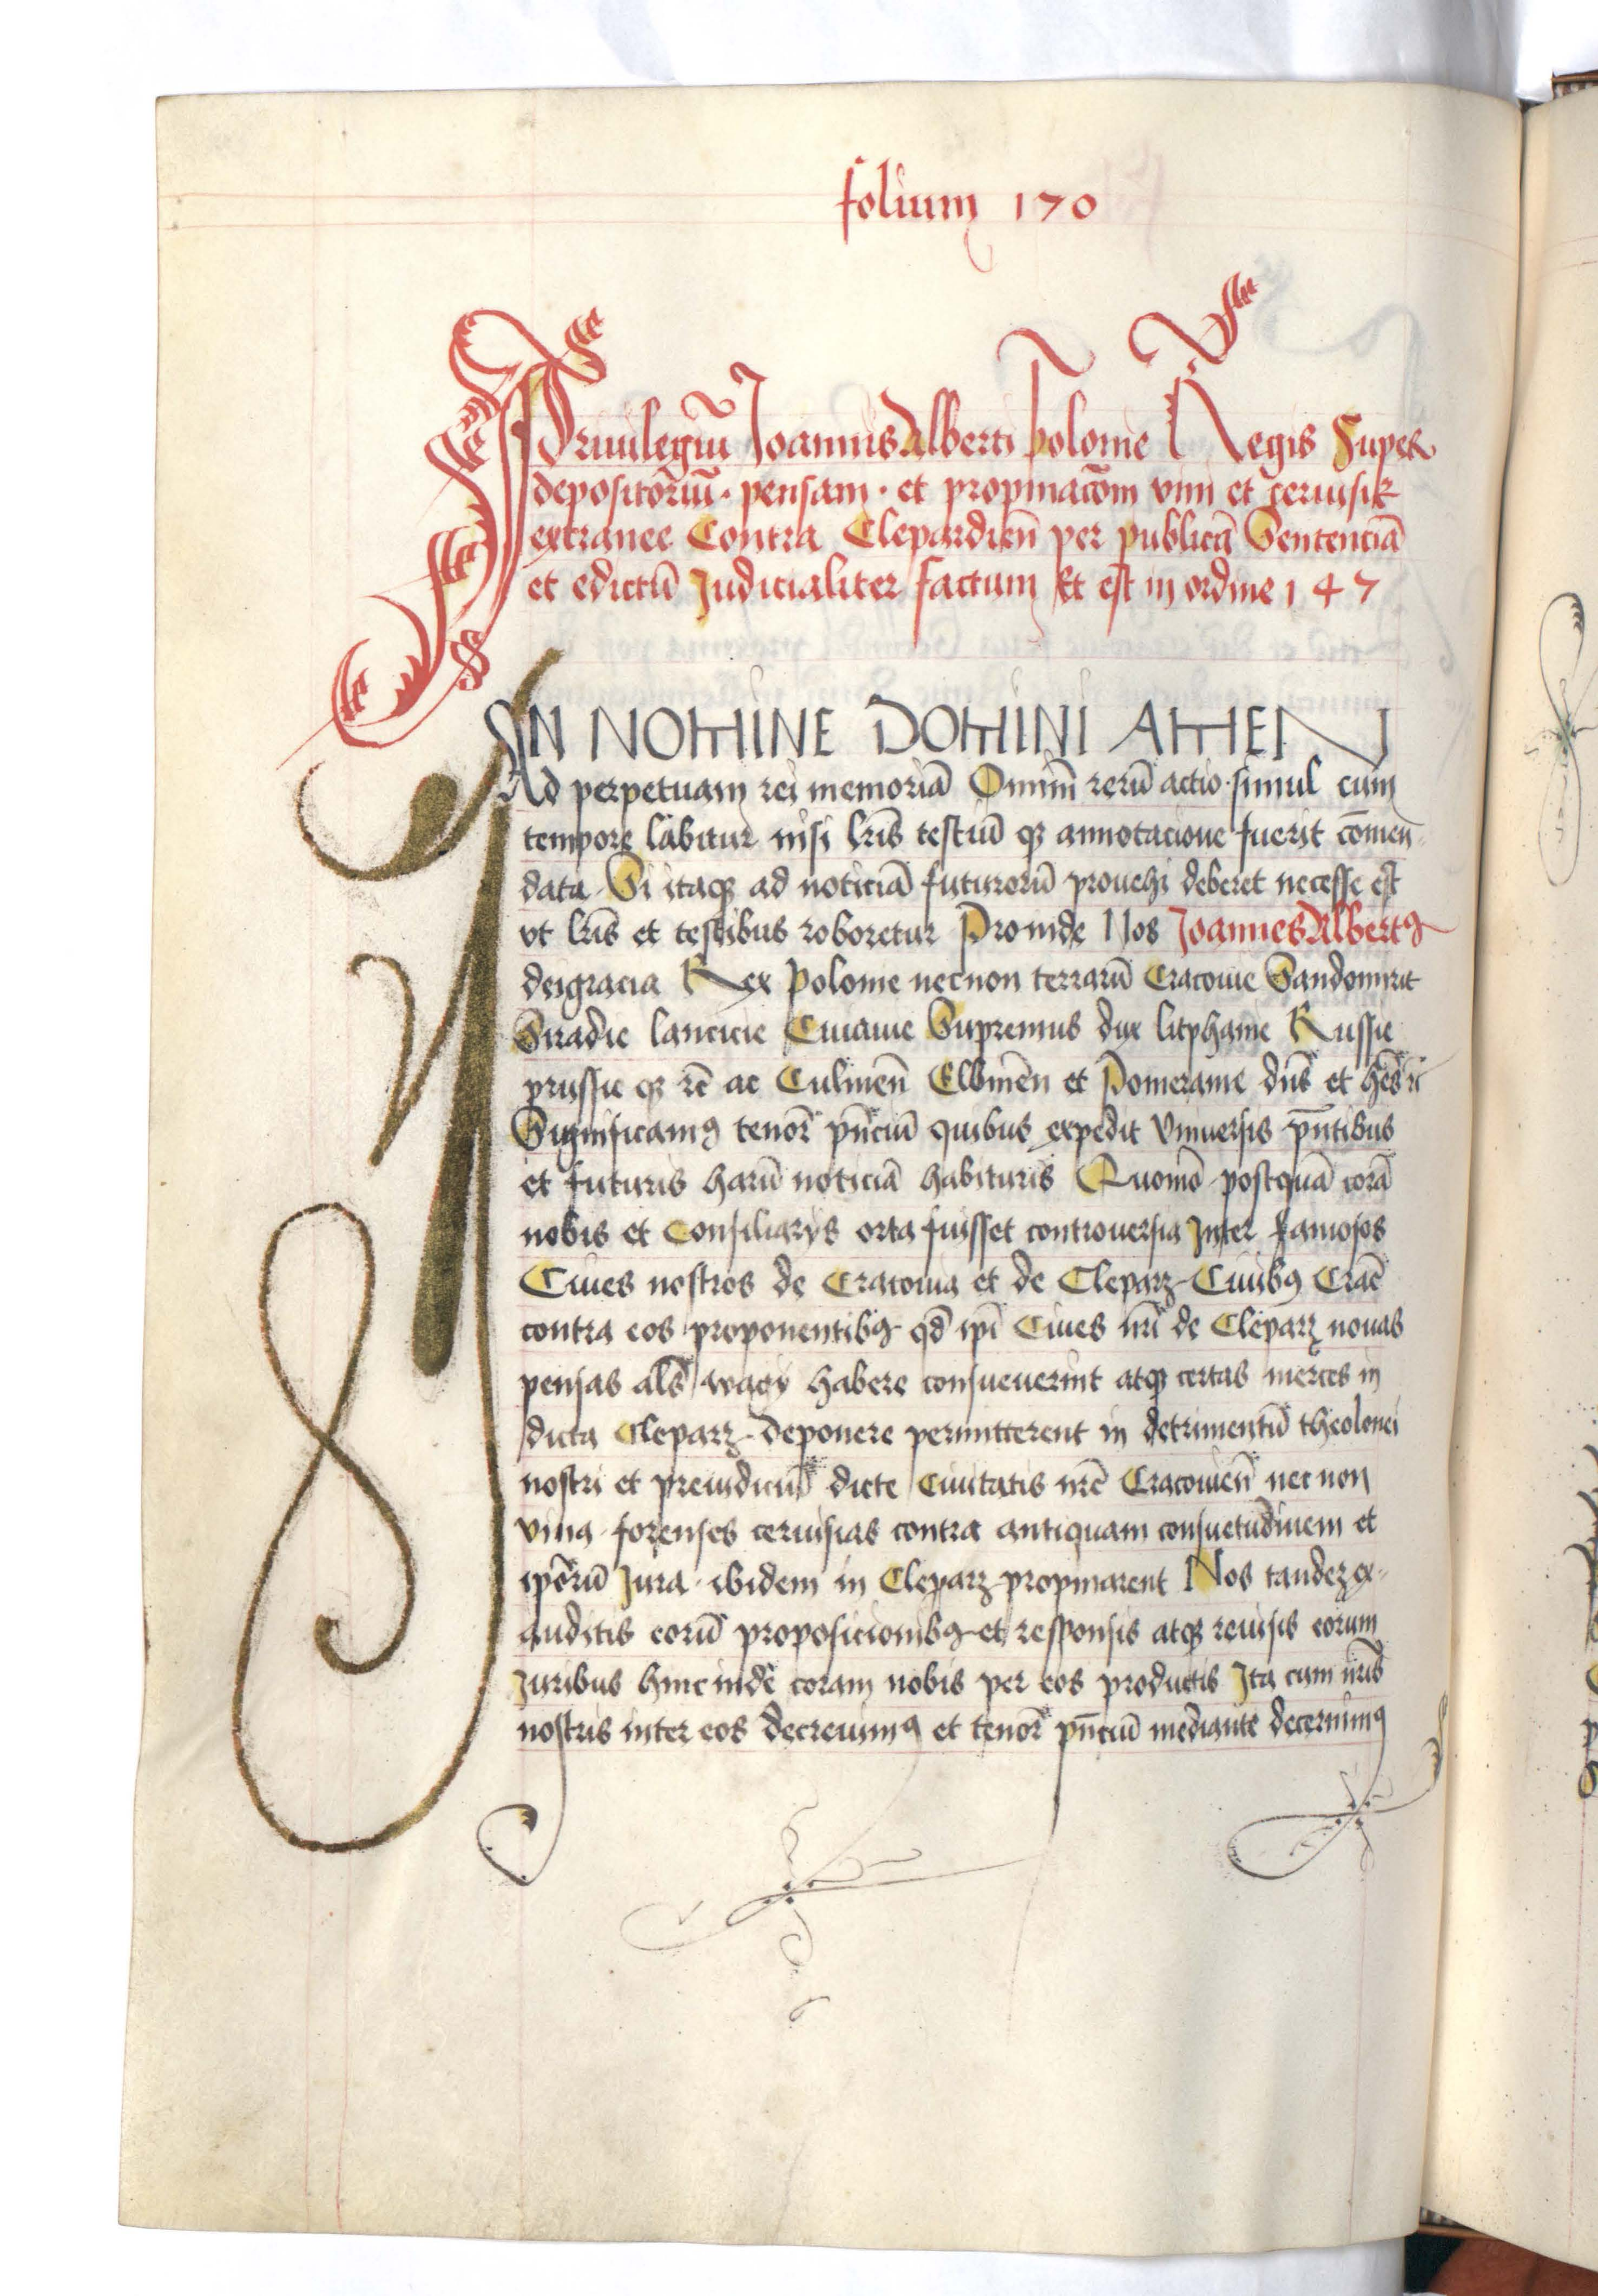 folium 170
Priuilegiū Joannis Alberti Polonie Regis Super
depositoriū · pensam · et propinacōm vini et ceruisie
extranee Contra Clepardieñ per publicā Sentenciā
et edictū Judicialiter factum Et est in ordine 147
IN NOMINE DOMINI AMEN
Ad perpetuam rei memoriā Omniū rerū actio simul cum
tempore labitur nisi lr̄is testiū qꝫ annotacione fuerit cōmen
data Si itaqꝫ ad noticiā futurorū prouehi deberet necesse est
vt lr̄is et testibus roboretur Proinde Nos Joannes Albertꝰ
deigracia Rex Polonie necnon terrarū Cracouie Sandomirie
Siradie lancicie Cuiauie Supremus dux litphanie Russie
prussie qꝫ rē ac Culmeñ Elbineñ et Pomeranie dn̄s et hēs rc̄
Significamꝰ tenor̄ pn̄ciū quibus expedit Vniuersis pn̄tibus
et futuris harū noticiā habituris Quomō postquā corā
nobis et Consiliarys orta fuisset controuersia Inter famosos
Ciues nostros de Cracouia et de Cleparz Ciuibꝰ Crac̄
contra eos proponentibꝰ qd̄ ipī Ciues nrī de Cleparz nouas
pensas als̄ wagy habere consueuerint atqꝫ certas merces in
dicta Cleparz deponere permitterent in detrimentū theolonei
nostri et preiudiciū dicte Ciuitatis nrē Cracouieñ nec non
vina forenses ceruisias contra antiquam consuetudinem et
ipōrū Jura ibidem in Cleparz propinarent Nos tandez ex-
auditis eorū proposicionibꝰ et responsis atqꝫ reuisis eorum
Juribus hincinde coram nobis per eos productis Ita cum nrīs
nostris inter eos decreuimꝰ et tenor̄ pn̄ciū mediante decernimꝰ